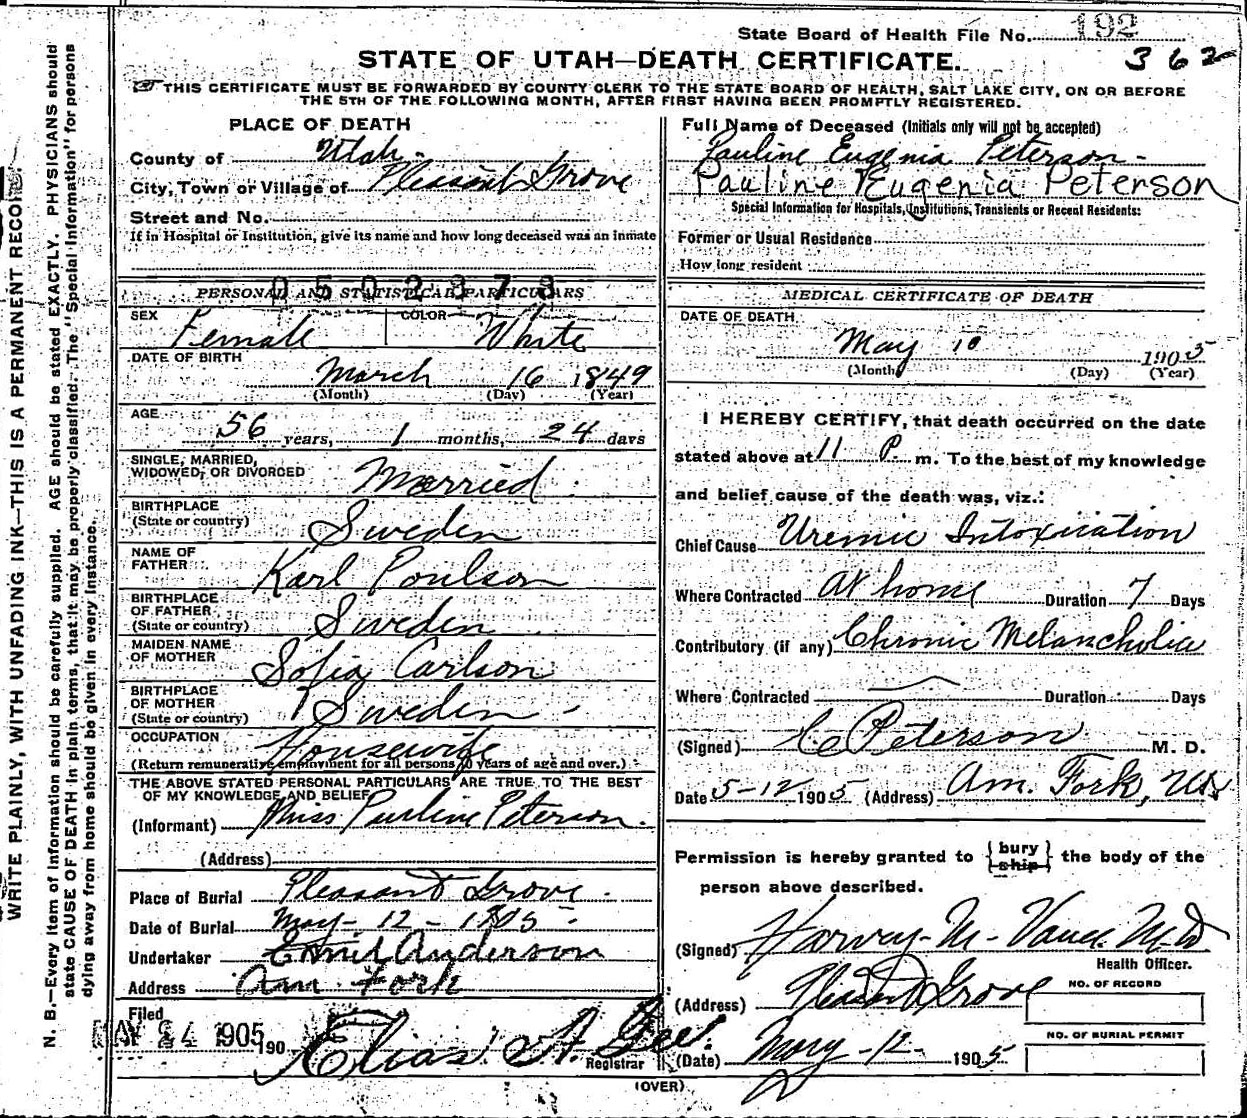 State Board of Health File No. 192
362
STATE OF UTAH—DEATH CERTIFICATE.
THIS CERTIFICATE MUST BE FORWARDED BY COUNTY CLERK TO THE STATE BOARD OF HEALTH, SALT LAKE CITY, ON OR BEFORE
THE 5TH OF THE FOLLOWING MONTH, AFTER FIRST HAVING BEEN PROMPTLY REGISTERED.
PLACE OF DEATH
County of Utah.
City, Town or Village of Pleasant Grove
Street and No.
If in Hospital or Institution, give its name and how long deceased was an inmate
0502373
PERSONAL AND STATISTICAL PARTICULARS
SEX Female COLOR White
DATE OF BIRTH
March 16 1849
(Month) (Day) (Year)
AGE
56 years, 1 months, 24 days
SINGLE, MARRIED,
WIDOWED, OR DIVORCED Married
BIRTHPLACE
(State or country) Sweden
NAME OF
FATHER Karl Poulson
BIRTHPLACE
OF FATHER
(State or country) Sweden
MAIDEN NAME
OF MOTHER Sofia Carlson
BIRTHPLACE
OF MOTHER
(State or country) Sweden
OCCUPATION Housewife
(Return remunerative employment for all persons 10 years of age and over.)
THE ABOVE STATED PERSONAL PARTICULARS ARE TRUE TO THE BEST
OF MY KNOWLEDGE AND BELIEF
(Informant) Miss Purline Peterson.
(Address)
Place of Burial Pleasant Grove.
Date of Burial May-12-1905
Undertaker Emil Anderson
Address Am. Fork
Filed
MAY 24 1905 190
Elias A. Gee.
Registrar
Full Name of Deceased (Initials only will not be accepted)
Pauline Eugenia Peterson-
Pauline Eugenia Peterson
Special Information for Hospitals, Institutions, Transients or Recent Residents:
Former or Usual Residence
How long resident
MEDICAL CERTIFICATE OF DEATH
DATE OF DEATH
May 10 1905
(Month) (Day) (Year)
I HEREBY CERTIFY, that death occurred on the date
stated above at 11 P. m. To the best of my knowledge
and belief cause of the death was, viz.:
Chief Cause Uremic Intoxication
Where Contracted at home Duration 7 Days
Contributory (if any) Chronic Melancholia
Where Contracted Duration Days
(Signed) C Peterson M. D.
Date 5-12 1905 (Address) Am. Fork, Utah
Permission is hereby granted to { bury ship } the body of the
person above described.
(Signed) Harvey-M-Vance M.D
Health Officer.
(Address) Pleasant Grove
NO. OF RECORD
NO. OF BURIAL PERMIT
(Date) May-12- 1905
(OVER)
WRITE PLAINLY, WITH UNFADING INK—THIS IS A PERMANENT RECORD.
N. B.—Every item of information should be carefully supplied. AGE should be stated EXACTLY. PHYSICIANS should
state CAUSE OF DEATH in plain terms, that it may be properly classified. The "Special Information" for persons
dying away from home should be given in every instance.